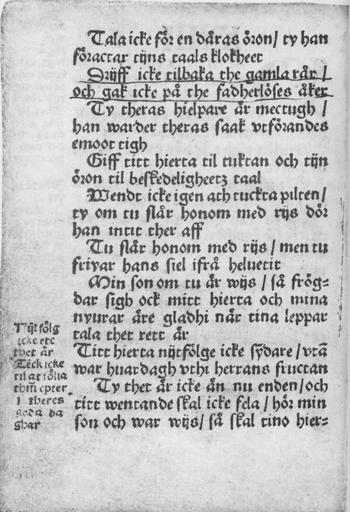 Tala icke för en dåras öron/ ty han
föractar tijns taals klokheet
Drijff icke tilbaka the gamla rår/
och gak icke på the fadherlöses åker
Ty theras hielpare är mectugh/
han warder theras saak vtförandes
emoot tigh
Giff titt hierta til tuktan och tijn
öron til beskedeligheetz taal
Wendt icke igen ath tuckta pilten/
ty om tu slår honom med rijs dör
han intit ther aff
Tu slår honom med rijs/ men tu
frivar hans siel ifrå heluetit
Min son om tu är wijs/ så frög-
dar sigh ock mitt hierta och mina
nyurar äre gladhi när tina leppar
tala thet rett är
Titt hierta nijtfölge icke sydare/ vtã
war huardagh vthi herrans fructan
Ty thet är icke än nu enden/ och
titt wentande skal icke fela/ hör min
son och war wijs/ så skal tino hier-
Nijtfölg
icke etc
thet är
Teck icke
til at fölia
thm̃ epter
i theres
goda da
ghar